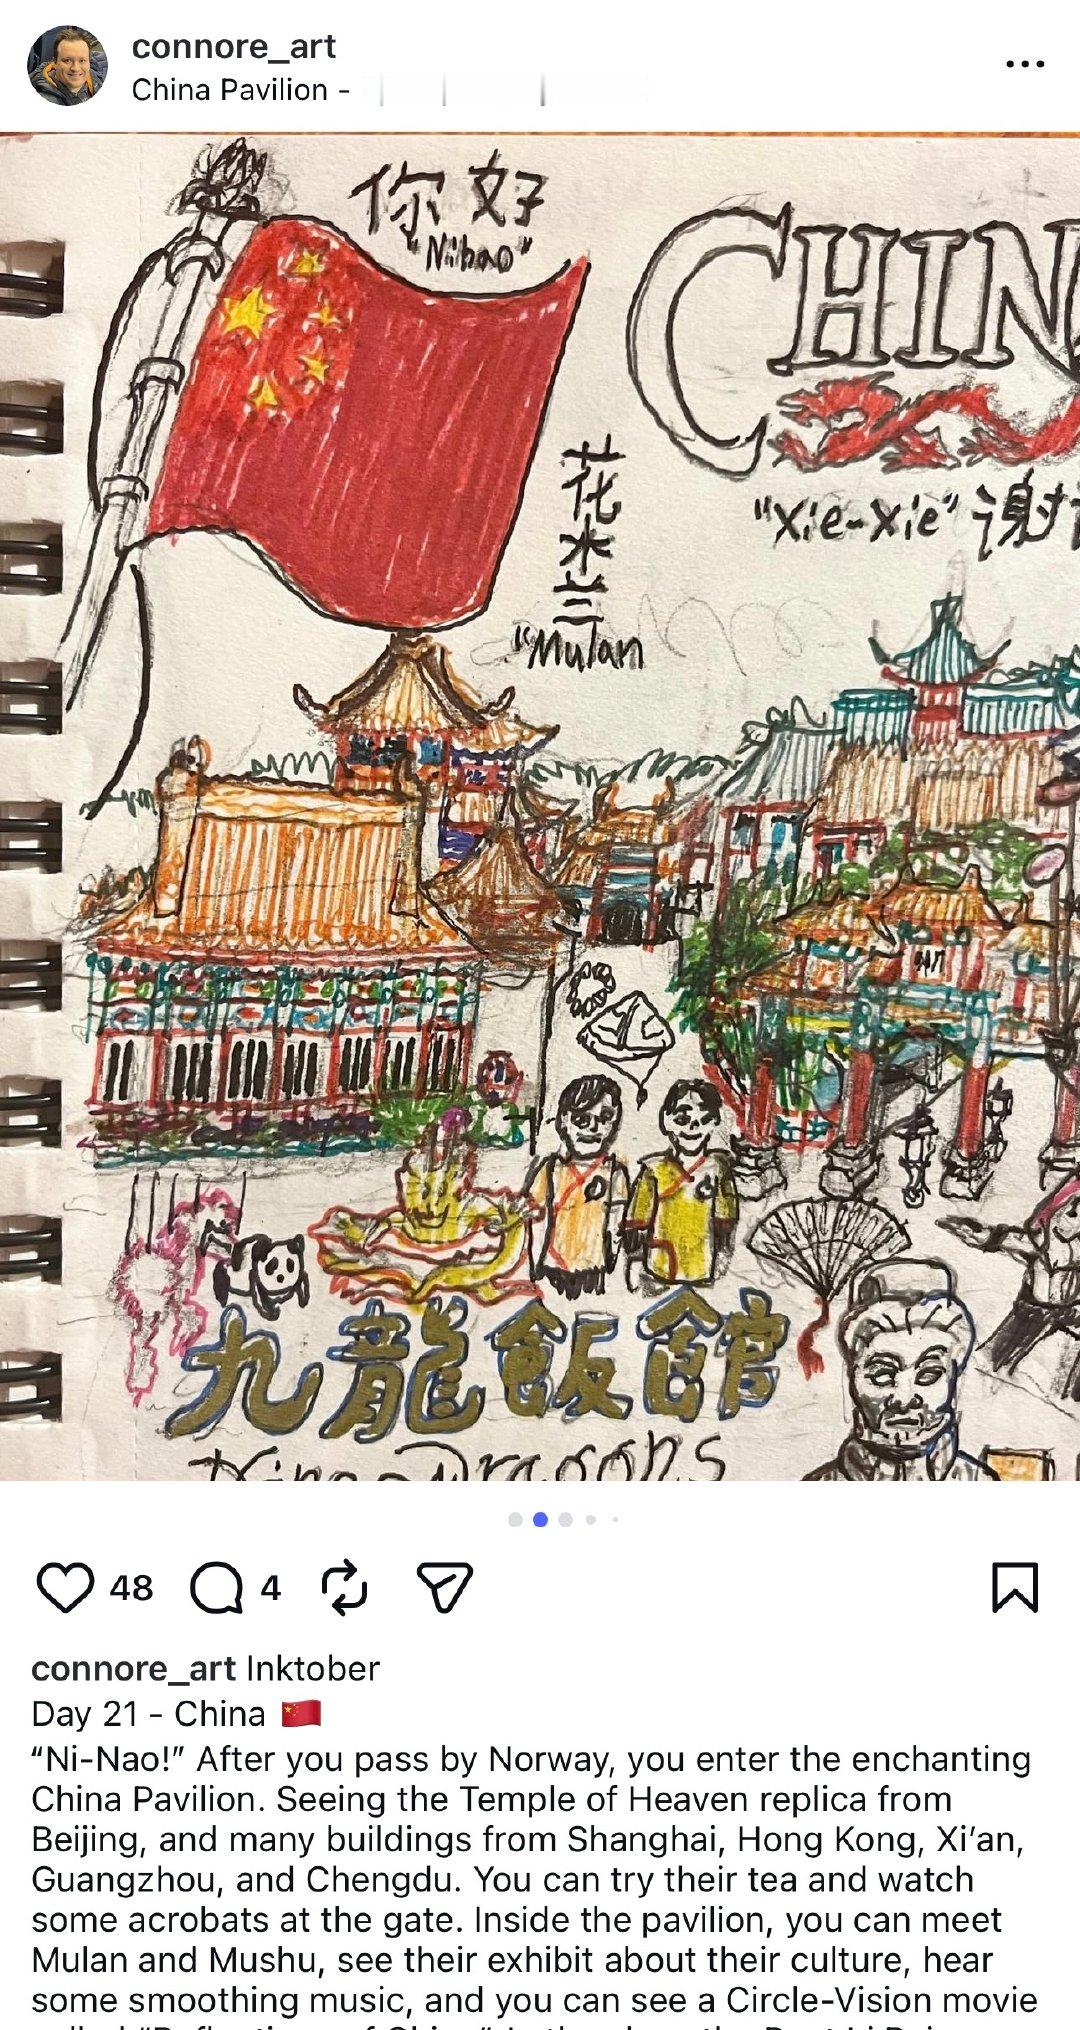 connore_art
China Pavilion -
你好
"Nihao"
CHIN
"Xie-Xie" 谢
花木兰
"Mulan
九龍飯館
Dragons
48
4
connore_art Inktober
Day 21 - China 🇨🇳
“Ni-Nao!” After you pass by Norway, you enter the enchanting
China Pavilion. Seeing the Temple of Heaven replica from
Beijing, and many buildings from Shanghai, Hong Kong, Xi’an,
Guangzhou, and Chengdu. You can try their tea and watch
some acrobats at the gate. Inside the pavilion, you can meet
Mulan and Mushu, see their exhibit about their culture, hear
some smoothing music, and you can see a Circle-Vision movie